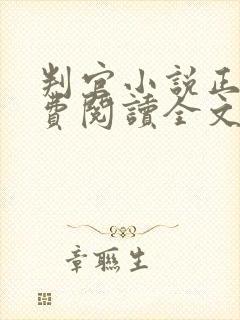 判官小說正
費閱讀全文
章聯生